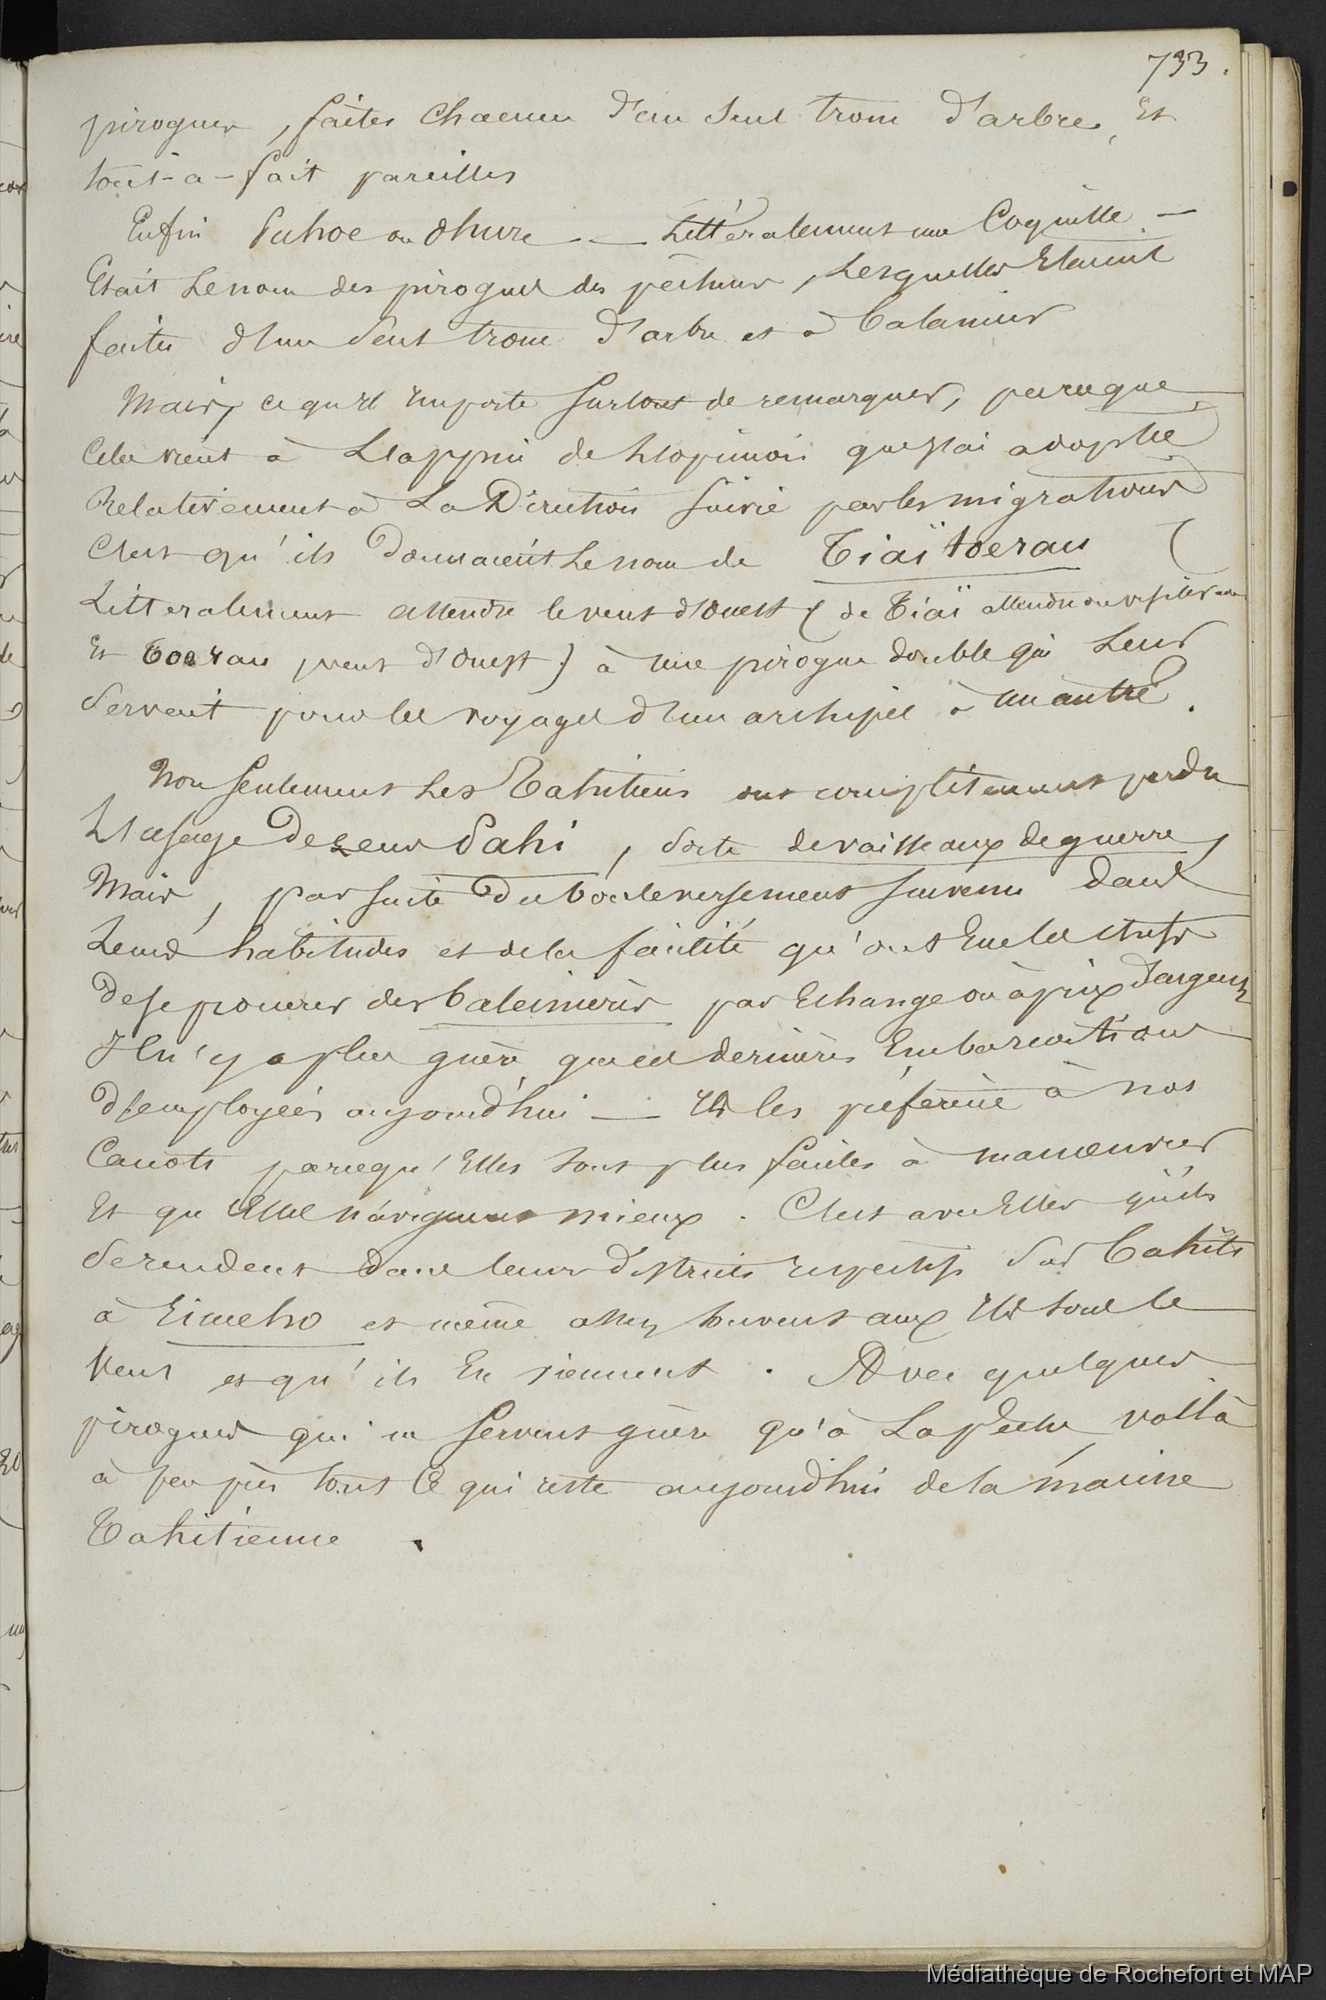 733.
pirogues, faites chacune d'un seul tronc d'arbre, et
tout-à-fait pareilles
Enfin Puhoe ou Ohure — Littéralement une Coquille —
Etait le nom des pirogues des pêcheurs, lesquelles Etaient
faites d'un seul tronc d'arbre et à balancier
Mais, ce qu'il importe surtout de remarquer, parceque
cela vient à l'appui de l'opinion que j'ai adoptée
Relativement à la Direction suivie par les migrations
c'est qu'ils donnaient le nom de Tiaï toerau (
Littéralement attendre le vent d'Ouest ( de Tiaï attendre ou
Et toerau vent d'Ouest ) à une pirogue double qui leur
servait pour les voyages d'un archipel à un autre.
Non seulement les Tahitiens ont complètement perdu
L'usage de leur Pahi, sorte de vaisseaux de guerre,
Mais, par suite du bouleversement survenu dans
Leurs habitudes et de la facilité qu'ont Eue les chefs
de se procurer des baleinières par Echange ou à prix d'argent
Il n'y a plus guère que ces dernières Embarcations
d'employées aujourd'hui — Ils les préfèrent à nos
Canots parcequ'Elles sont plus faciles à manoeuvrer
Et qu'Elles naviguent mieux. C'est avec Elles qu'ils
se rendent dans leurs districts respectifs sur Tahiti
à Eimeho et même assez souvent aux Iles sous le
Vent et qu'ils En viennent. Avec quelques
pirogues qui ne servent guère qu'à La pêche, voilà
à peu près tout ce qui reste aujourd'hui de la marine
Tahitienne.
Médiathèque de Rochefort et MAP